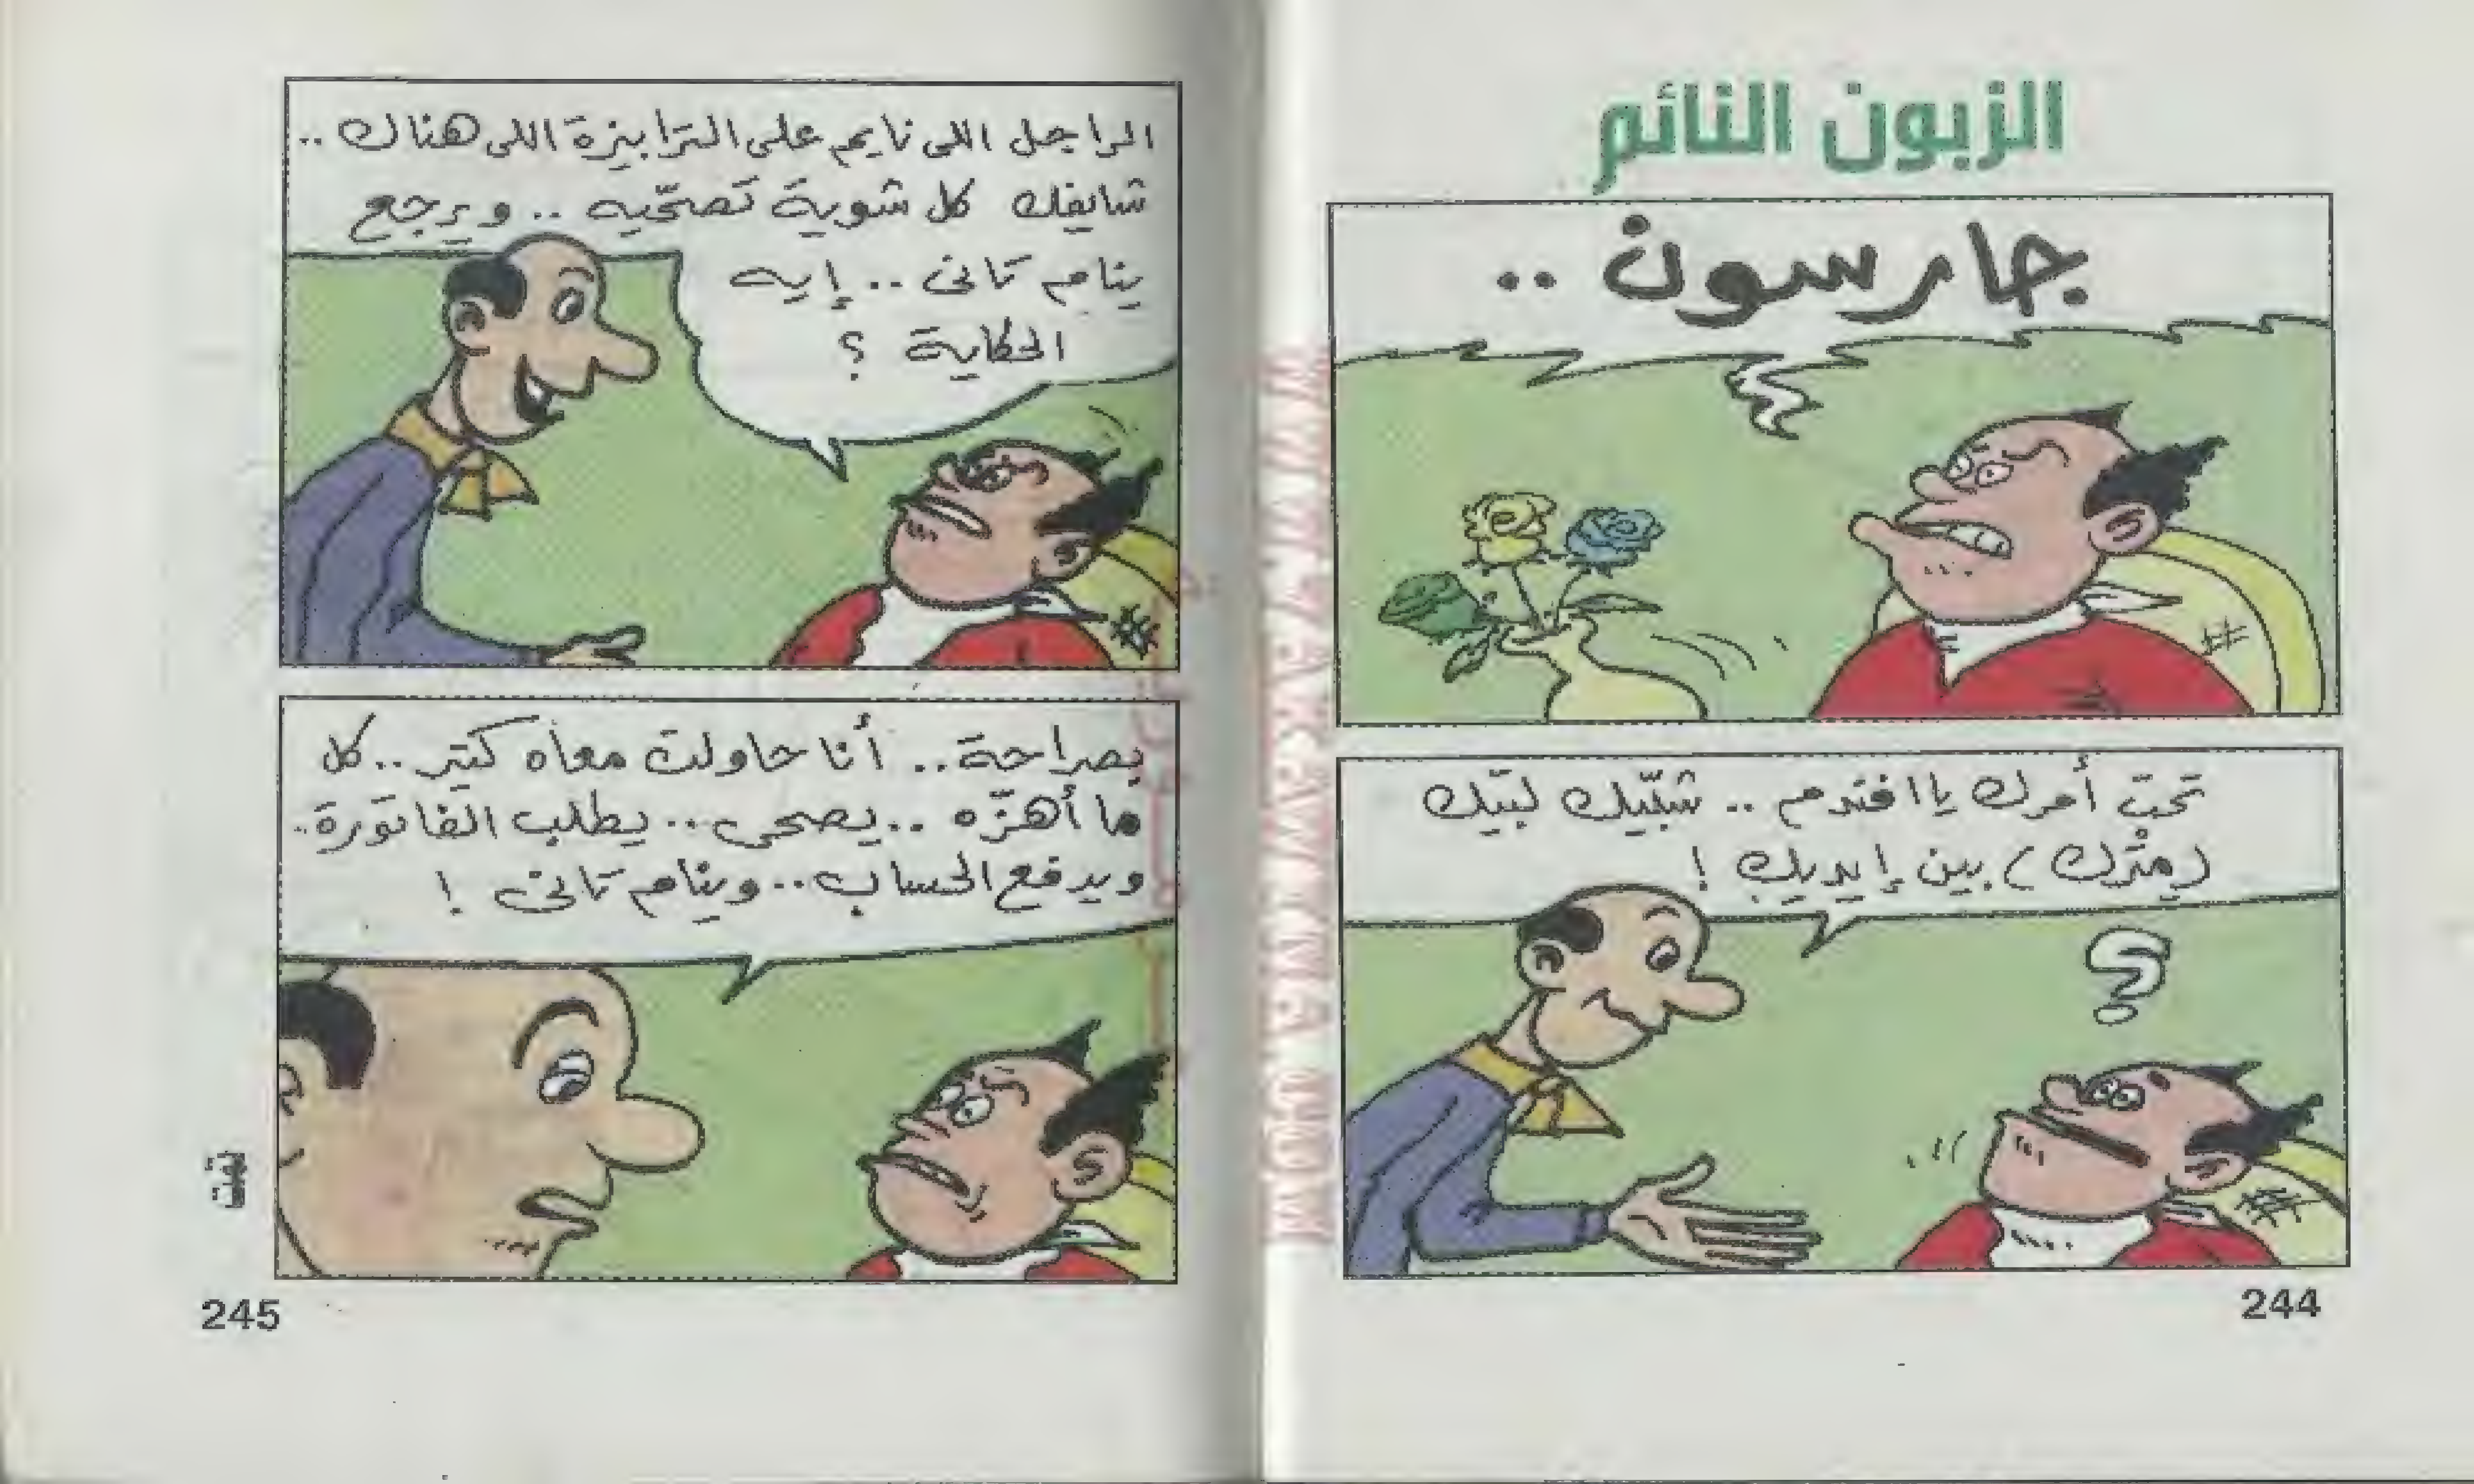 الزبون النائم
جارسون ..
تحت أمرك يا افندم .. شبّيك لبّيك
(مترك) بين إيديك !
244
الراجل اللى نايم على الترابيزة اللى هناك ..
شايفك كل شوية تصحّيه .. ويرجع
ينام تانى .. إيه
الحكاية ؟
بصراحة .. أنا حاولت معاه كتير .. كل
ما أهزّه .. يصحى .. يطلب الفاتورة ..
ويدفع الحساب .. وينام تانى !
تمت
245